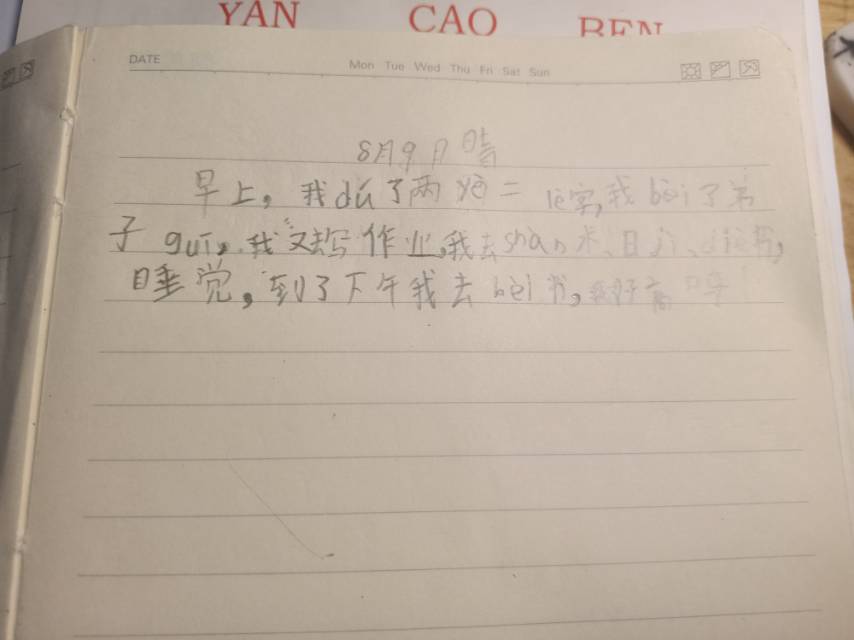 YAN CAO BEN
DATE Mon Tue Wed Thu Fri Sat Sun
8月9日 晴
早上，我dú了两 二 ，我bèi了弟
子guī，我又去写作业，我去 术、日jì、 书，
睡觉，到了下午我去bèi书，我好高